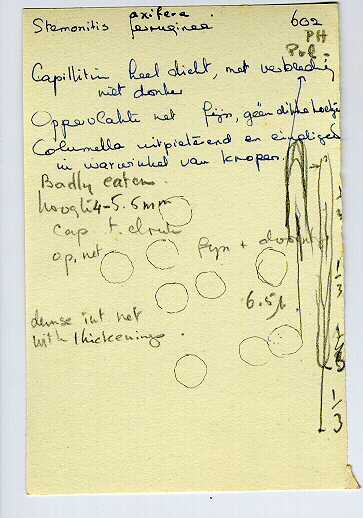 axifera
Stemonitis ferruginea 602
PH
Prl -
Capillitium heel dicht, met verbreding
niet donker
Oppervlakte net fijn, géén dikke
Columella uitpieterend en eindigend
in warwinkel van knopen.
Badly eaten
hoogte 4-5.5mm
Cap f.
op, net fijn +
6.5µ
dense int net
with thickenings.
1/3
1/3
1/3